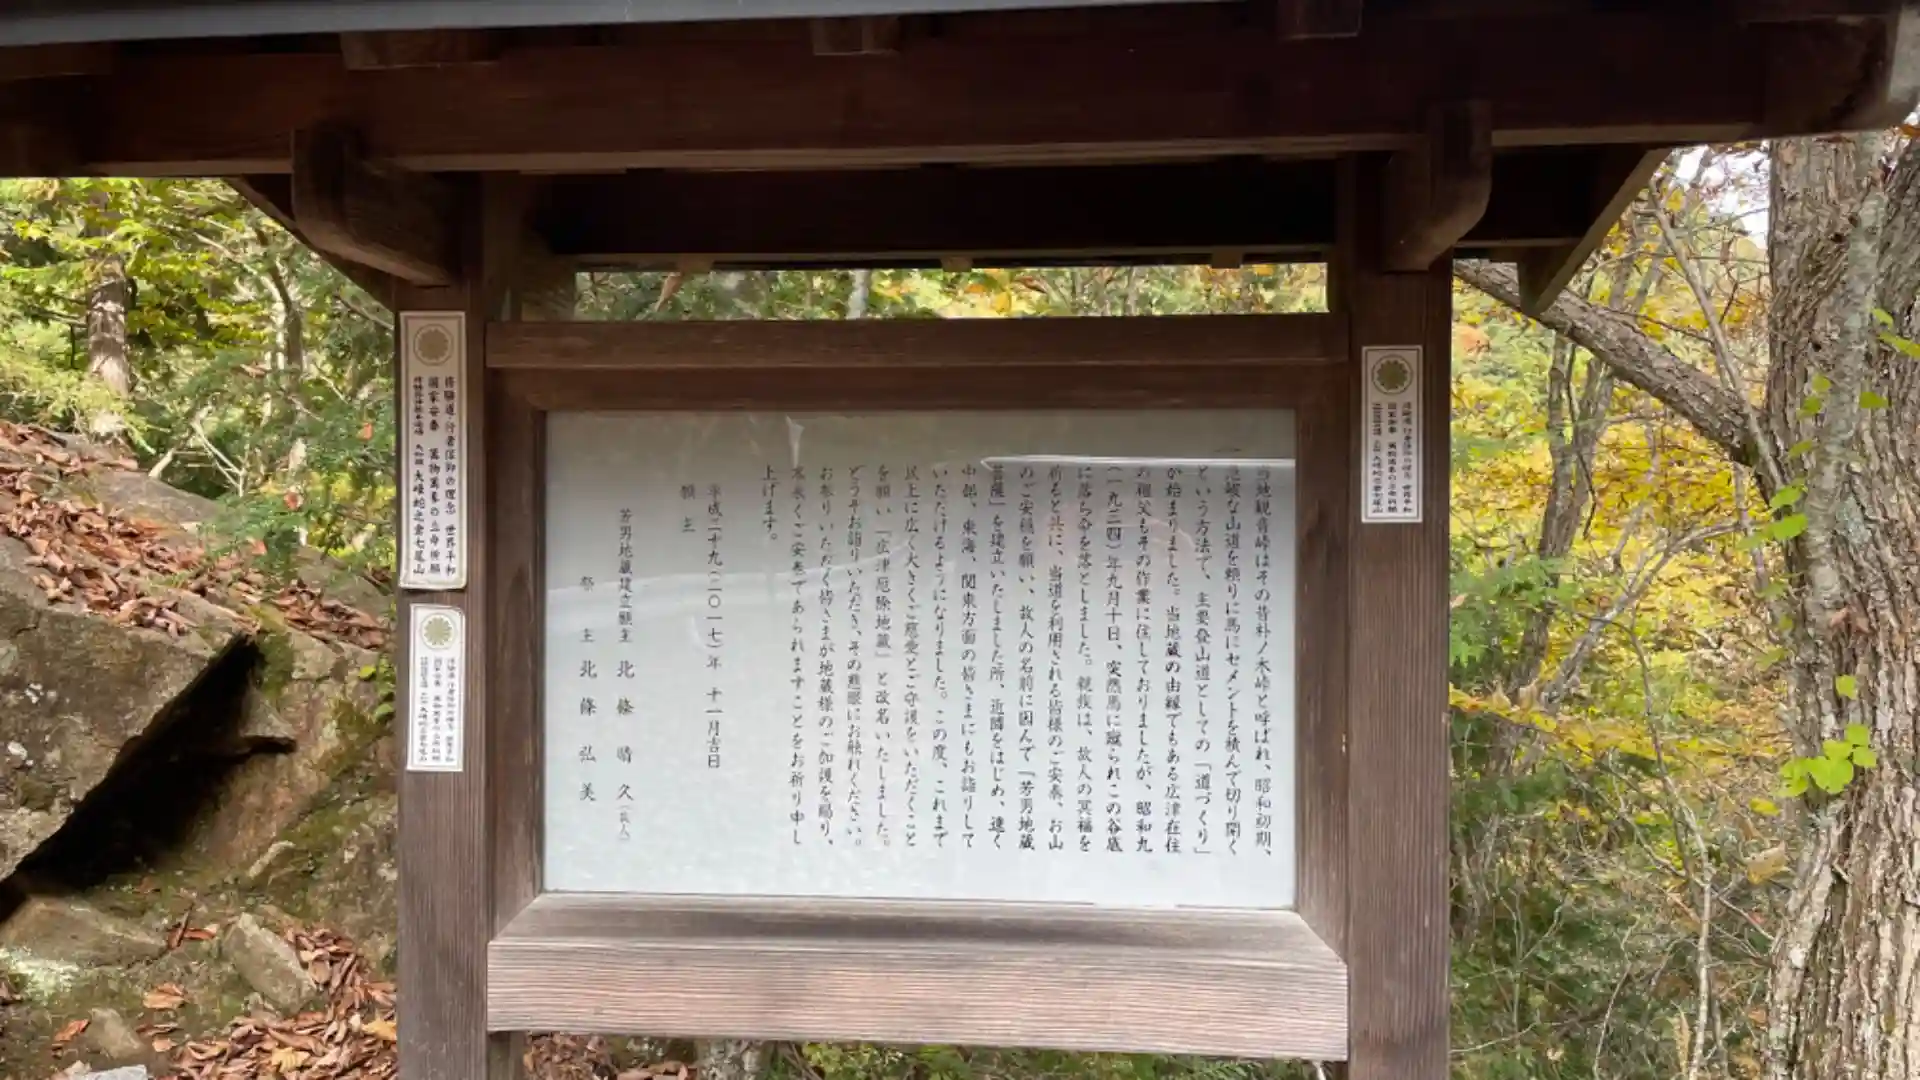 当地観音峠はその昔朴ノ木峠と呼ばれ、昭和初期、
急峻な山道を頼りに馬にセメントを積んで切り開く
という方法で、主要登山道としての「道づくり」
が始まりました。当地蔵の由縁でもある広津在住
の祖父もその作業に従事しておりましたが、昭和九
(一九三四)年九月十日、突然馬に蹴られこの谷底
に落ち命を落としました。親族は、故人の冥福を
祈ると共に、当道を利用される皆様のご安泰、お山
のご安穏を願い、故人の名前に因んで「芳男地蔵
菩薩」を建立いたしました所、近隣をはじめ、遠く
中部、東海、関東方面の皆さまにもお詣りして
いただけるようになりました。この度、これまで
以上に広く大きくご慈愛とご守護をいただくこと
を願い、「広津厄除地蔵」と改名いたしました。
どうぞお詣りいただき、その慈眼にお触れください。
お参りいただく皆さまが地蔵様のご加護を賜り、
末永くご安泰であられますことをお祈り申し
上げます。
平成二十九(二〇一七)年 十一月吉日
願主
芳男地蔵建立願主 北條 晴久(故人)
祭主 北條 弘美
修験道・行者信仰の理念 世界平和
国家安泰 萬物萬象の立命祈願
大峰蛇之倉七尾山